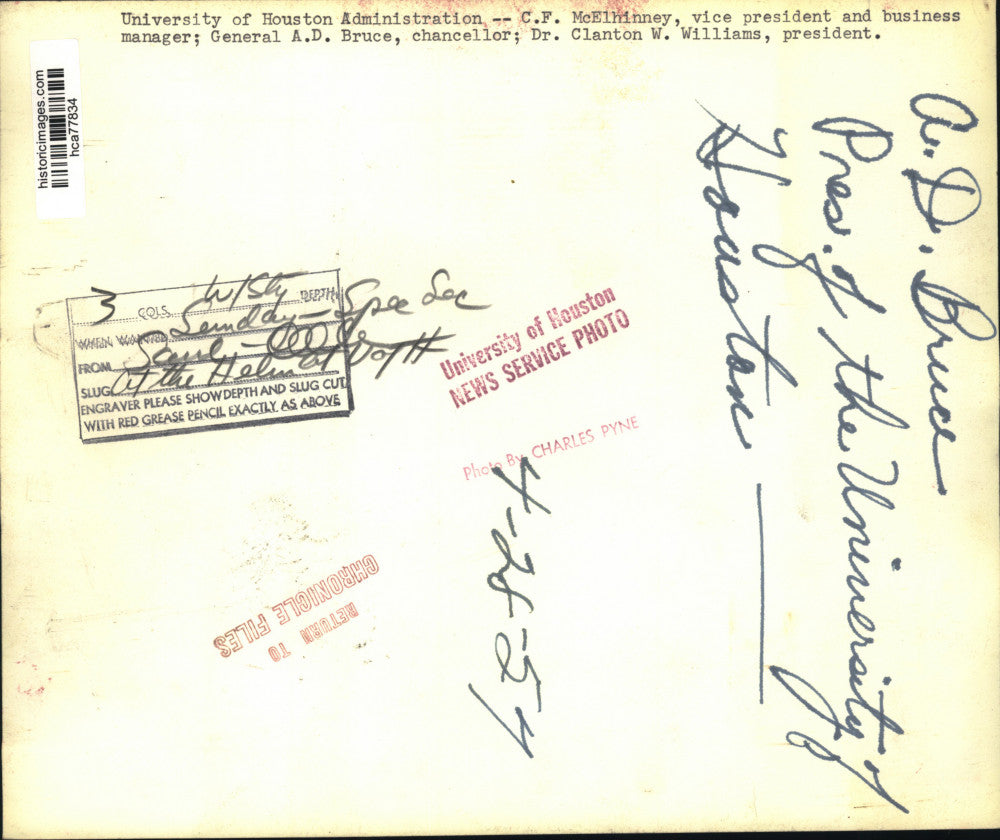 University of Houston Administration -- C.F. McElhinney, vice president and business
manager; General A.D. Bruce, chancellor; Dr. Clanton W. Williams, president.
historicimages.com
hca77834
A. D. Bruce
Pres. of the University of
Houston
3 COLS. W/Sty DEPTH
WHEN WANTED Sunday - Spec Sec
FROM
SLUG At the Helm at UofH
ENGRAVER PLEASE SHOW DEPTH AND SLUG CUT
WITH RED GREASE PENCIL EXACTLY AS ABOVE
University of Houston
NEWS SERVICE PHOTO
Photo By CHARLES PYNE
4-28-54
RETURN TO
CHRONICLE FILES